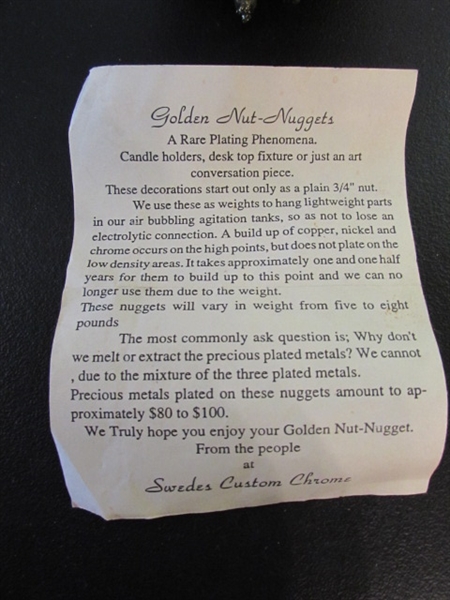 Golden Nut-Nuggets
A Rare Plating Phenomena.
Candle holders, desk top fixture or just an art
conversation piece.
These decorations start out only as a plain 3/4" nut.
We use these as weights to hang lightweight parts
in our air bubbling agitation tanks, so as not to lose an
electrolytic connection. A build up of copper, nickel and
chrome occurs on the high points, but does not plate on the
low density areas. It takes approximately one and one half
years for them to build up to this point and we can no
longer use them due to the weight.
These nuggets will vary in weight from five to eight
pounds
The most commonly ask question is; Why don't
we melt or extract the precious plated metals? We cannot
, due to the mixture of the three plated metals.
Precious metals plated on these nuggets amount to ap-
proximately $80 to $100.
We Truly hope you enjoy your Golden Nut-Nugget.
From the people
at
Swedes Custom Chrome